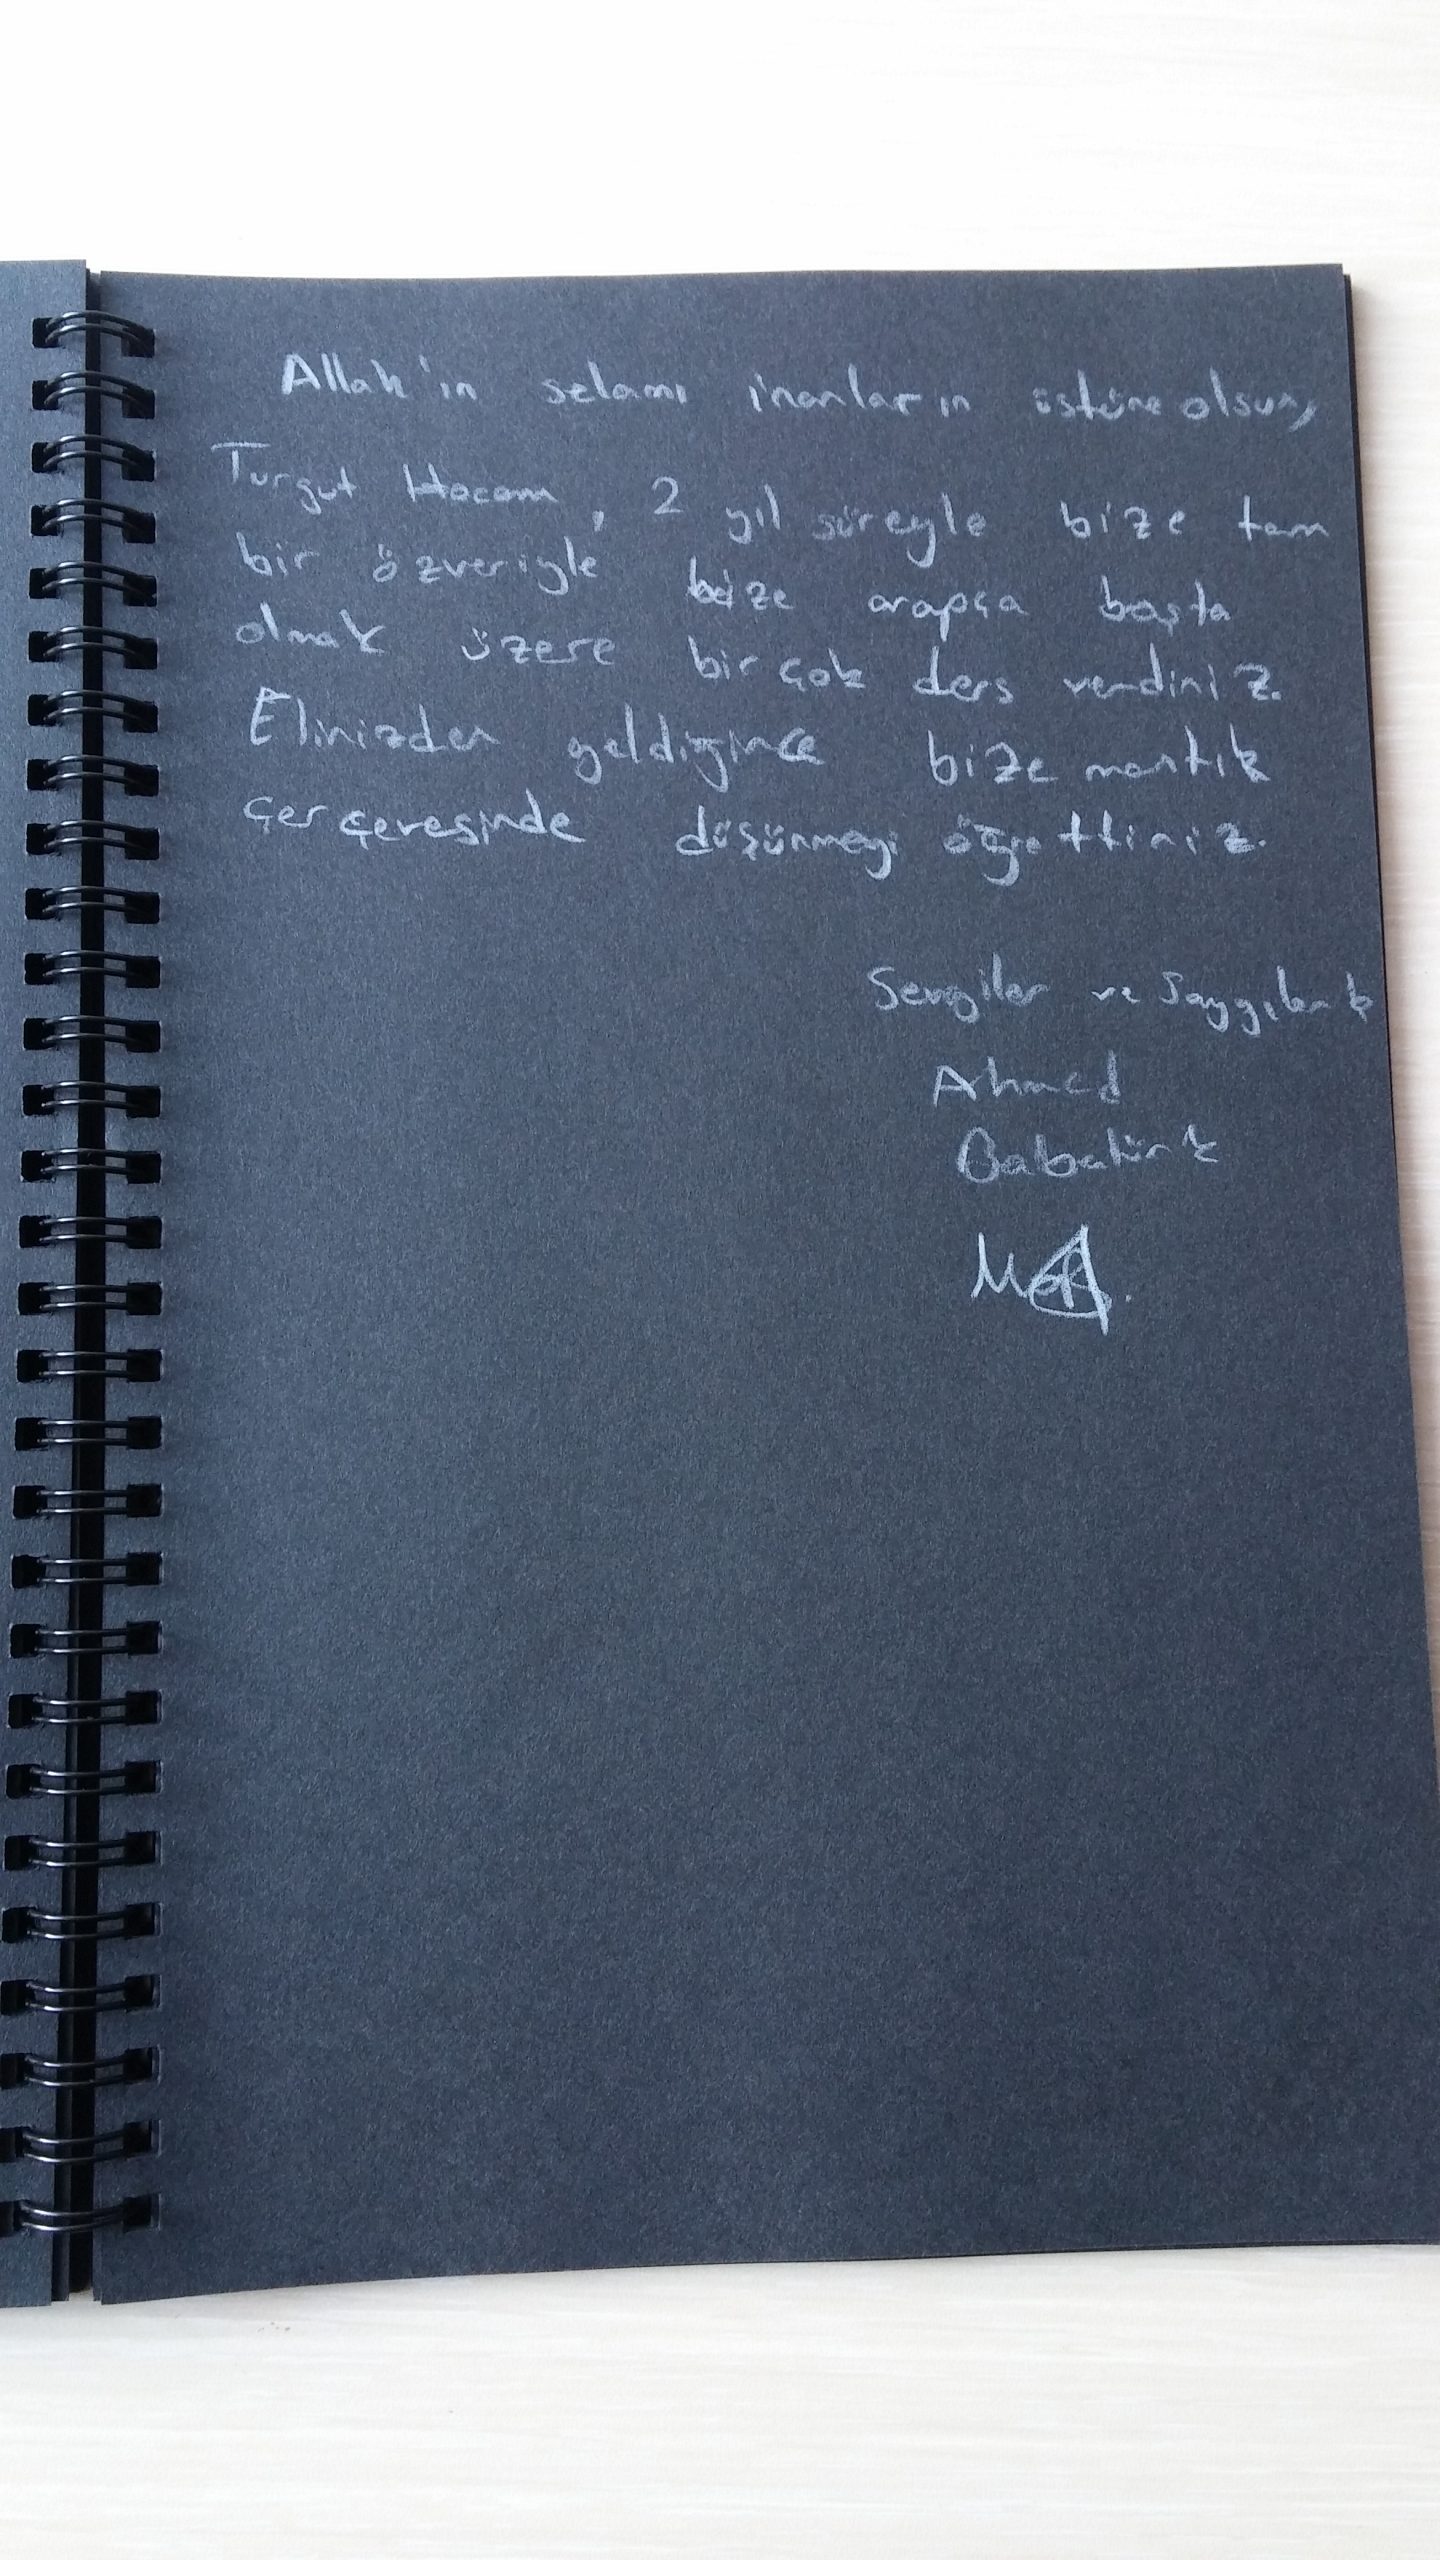 Allah'ın selamı inanların üstüne olsun,
Turgut Hocam, 2 yıl süreyle bize tam
bir özveriyle bize arapça başta
olmak üzere bir çok ders verdiniz.
Elinizden geldiğince bize mantık
çerçevesinde düşünmeyi öğrettiniz.
Sevgiler ve Saygılar
Ahmed
Babatürk